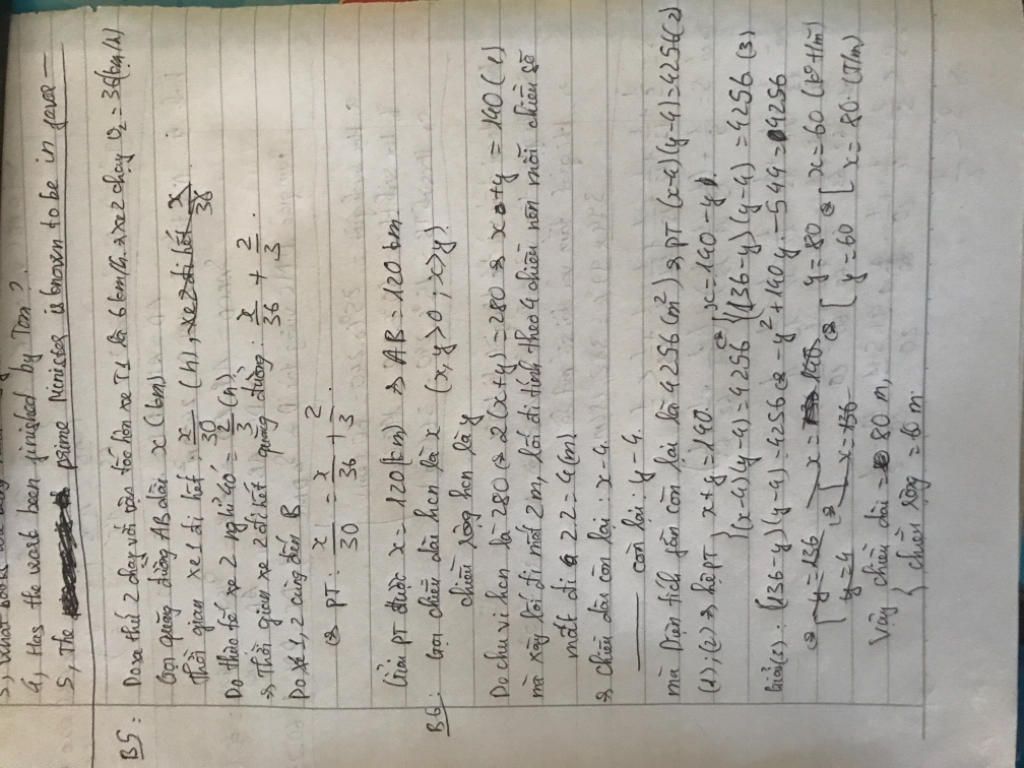 4, Has the work been finished by Tom?
5, The prime Minister is known to be in favor
B5: Do xe thứ 2 chạy với vận tốc hơn xe T1 là 6 km/h. => xe 2 chạy V₂ = 36 (km/h)
Gọi quãng đường AB dài x (km)
Thời gian xe 1 đi hết x/30 (h), xe 2 đi hết x/36
Do thực tế xe 2 nghỉ 40' = 2/3 (h)
=> Thời gian xe 2 đi hết quãng đường: x/36 + 2/3.
Do x 1, 2 cùng đến B
<=> PT: x/30 = x/36 + 2/3
Giải PT được x = 120 (km) => AB = 120 km
B6: Gọi chiều dài hcn là x (x, y > 0; x > y)
chiều rộng hcn là y
Do chu vi hcn là 280 <=> 2(x+y) = 280 <=> x + y = 140 (1)
mà xây lối đi mất 2m, lối đi tính theo 4 chiều nên mỗi chiều sẽ
mất đi 2.2 = 4 (m)
=> chiều dài còn lại: x - 4
—— còn lại: y - 4.
mà Diện tích phần còn lại là 4256 (m²) => PT (x-4)(y-4) = 4256 (2)
(1); (2) => hệ PT { x + y = 140 <=> { x = 140 - y
(x-4)(y-4) = 4256 (136-y)(y-4) = 4256 (3)
Giải (3): (136-y)(y-4) = 4256 <=> -y² + 140y - 544 = 4256
<=> [ y = 136 <=> [ x = y = 80 <=> [ x = 60 (ko t/m)
y = 4 x = 136 y = 60 x = 80 (T/m)
Vậy { chiều dài = 80 m,
chiều rộng = 6 m